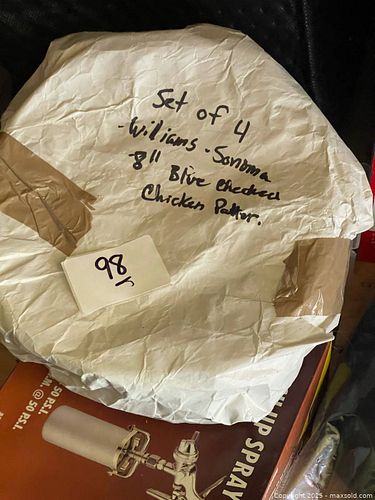 Set of 4
-Williams-Sonoma
-8" Blue Checked
Chicken Patter.
98
50 P.S.I.
M. @ 50 P.S.I.
UP SPRAY
Copyright 2025 - maxsold.com